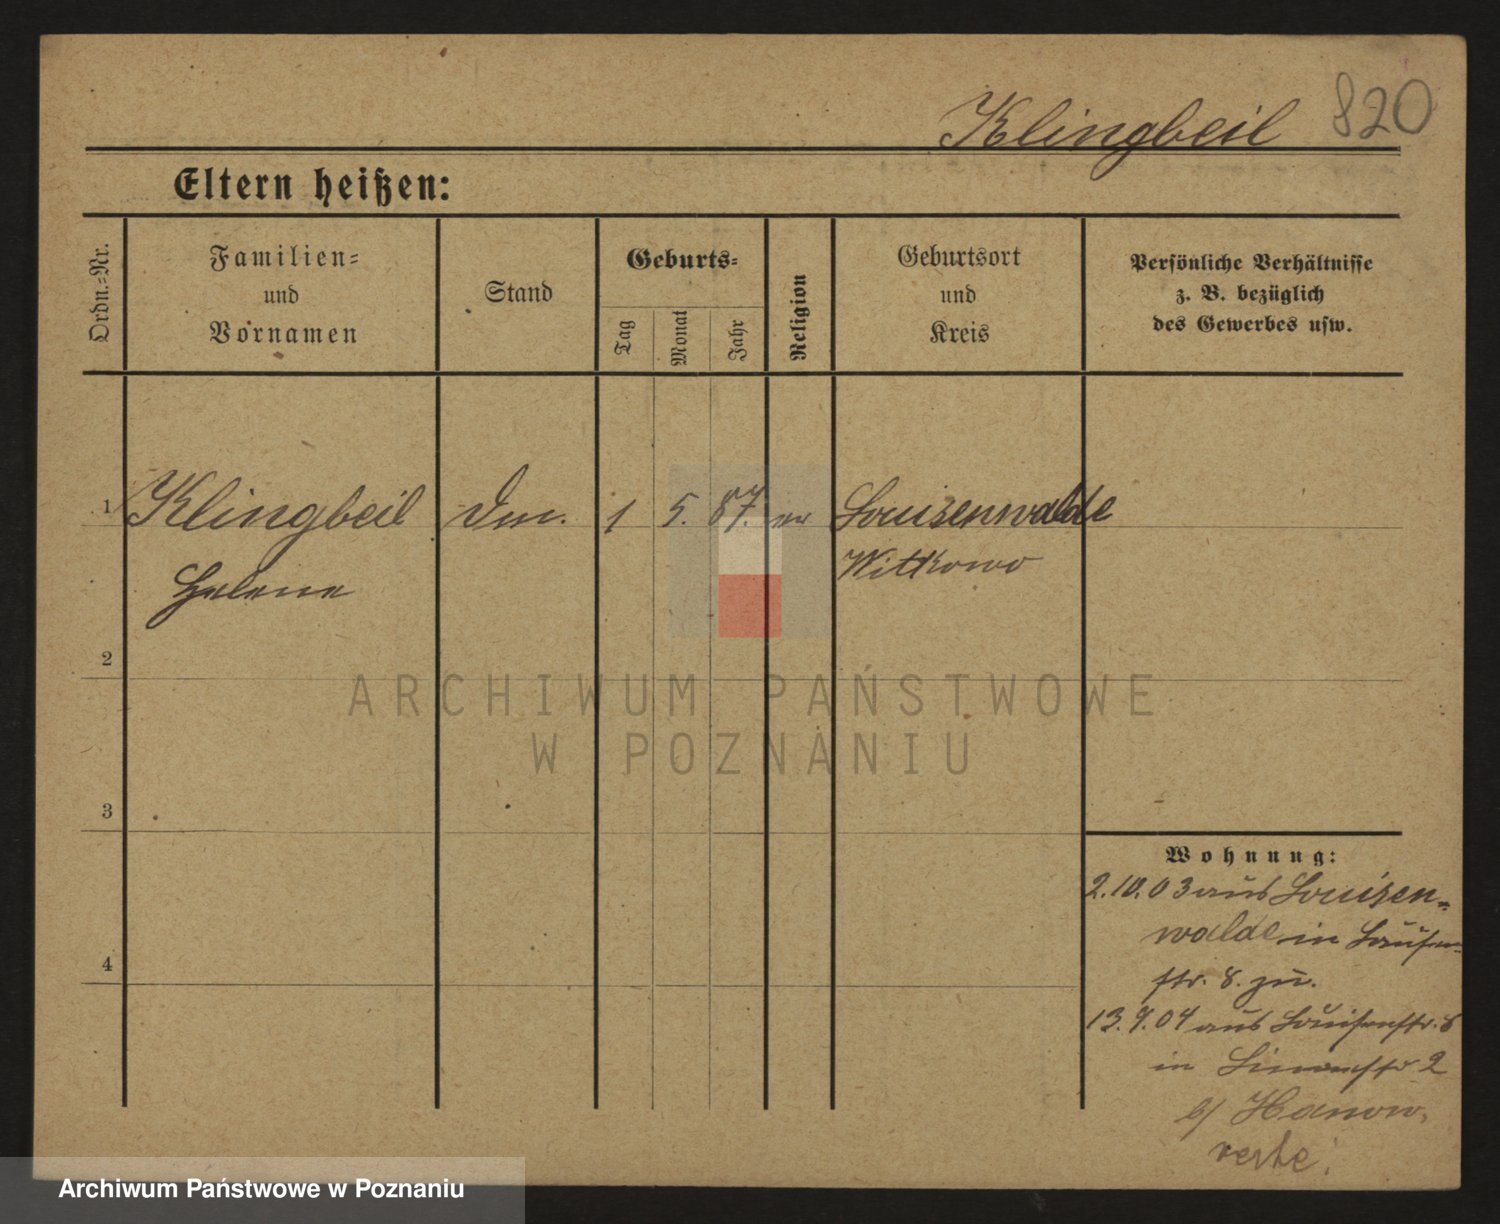 Klingbeil 820
Eltern heißen:
Ordn.=Nr.
Familien=
und
Vornamen
Stand
Geburts=
Tag
Monat
Jahr
Religion
Geburtsort
und
Kreis
Persönliche Verhältnisse
z. B. bezüglich
des Gewerbes usw.
1 Klingbeil 1 5. 87. ev Louisenwalde
Helene Wittkowo
2
ARCHIWUM PAŃSTWOWE
W POZNANIU
3
4
Wohnung:
2.10.03 aus Louisen=
walde in Louisen=
str. 8. zu.
aus Louisenstr. 8
in 2
b/
verte!
Archiwum Państwowe w Poznaniu